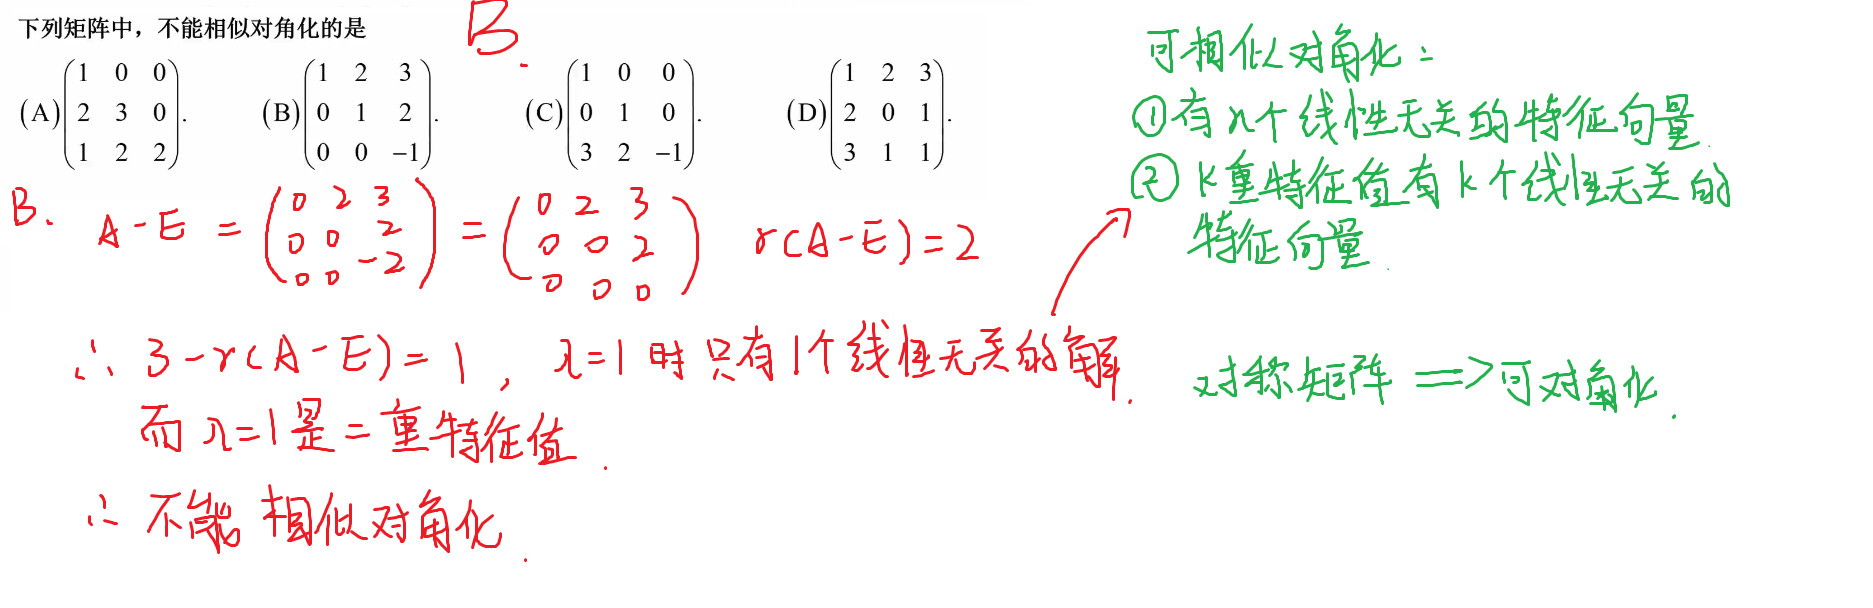 下列矩阵中，不能相似对角化的是 B.
(A) (1 0 0; 2 3 0; 1 2 2). (B) (1 2 3; 0 1 2; 0 0 -1). (C) (1 0 0; 0 1 0; 3 2 -1). (D) (1 2 3; 2 0 1; 3 1 1).
B. A-E = (0 2 3; 0 0 2; 0 0 -2) = (0 2 3; 0 0 2; 0 0 0) r(A-E)=2
∴ 3-r(A-E)=1, λ=1时只有1个线性无关的解.
而λ=1是二重特征值.
∴ 不能相似对角化.
可相似对角化:
①有n个线性无关的特征向量.
②k重特征值有k个线性无关的
特征向量.
对称矩阵 ⟹可对角化.